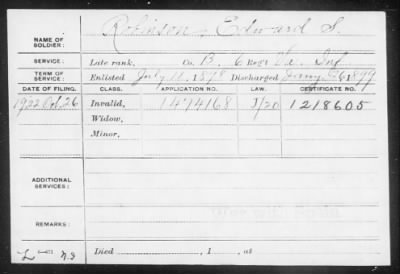 NAME OF SOLDIER: Robinson, Edward S.
SERVICE: Late rank, Co. B, 6 Reg't Va. Inf
TERM OF SERVICE: Enlisted July 11, 1898 Discharged Jany 26, 1899
DATE OF FILING. CLASS. APPLICATION NO. LAW. CERTIFICATE NO.
1922 Oct. 26 Invalid, 1474168 J/20 1218605
Widow,
Minor,
ADDITIONAL SERVICES:
REMARKS:
Died , 1 , at